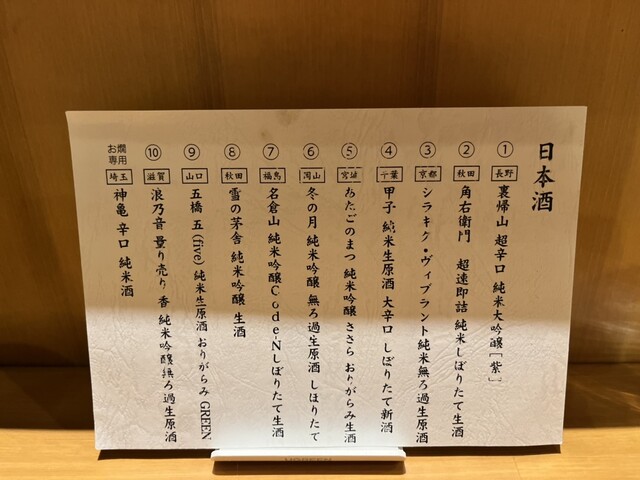 日本酒
① 長野 裏帰山 超辛口 純米大吟醸「紫」
② 秋田 角右衛門 超速即詰 純米しぼりたて生酒
③ 京都 シラキク・ヴィブラント純米無ろ過生原酒
④ 千葉 甲子 純米生原酒 大辛口 しぼりたて新酒
⑤ 宮城 あたごのまつ 純米吟醸 ささら おりがらみ生酒
⑥ 岡山 冬の月 純米吟醸 無ろ過生原酒 しぼりたて
⑦ 福島 名倉山 純米吟醸Code-Nしぼりたて生酒
⑧ 秋田 雪の茅舎 純米吟醸 生酒
⑨ 山口 五橋 五(five) 純米生原酒 おりがらみ GREEN
⑩ 滋賀 浪乃音 量り売り 香 純米吟醸無ろ過生原酒
お燗専用 埼玉 神亀 辛口 純米酒